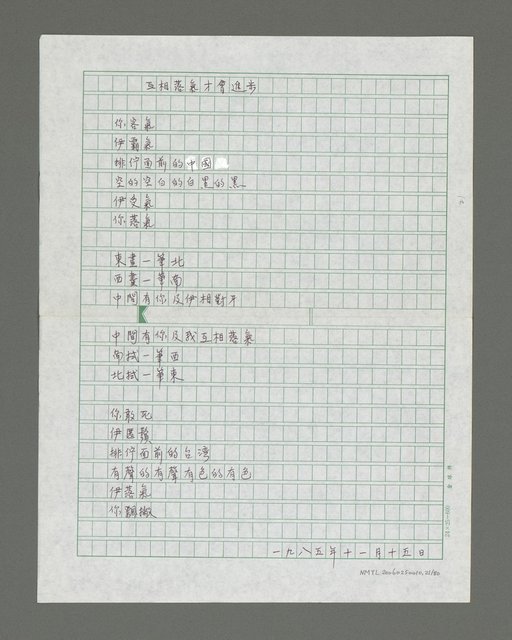 互相落氣才會進步
你客氣
伊霸氣
排佇面前的中國
空的空白的白黑的黑
伊受氣
你落氣
東畫一筆北
西畫一筆南
中間有你及伊相對干
中間有你及我互相落氣
南拭一筆西
北拭一筆東
你敢死
伊囂鬚
排佇面前的台湾
有聲的有聲有色的有色
伊落氣
你飜撇
一九八五年十一月十五日
24×25=600